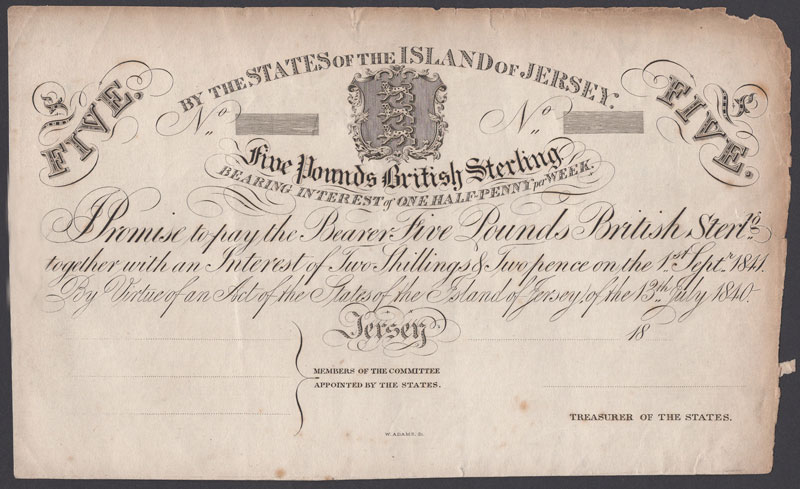 BY THE STATES OF THE ISLAND OF JERSEY.
FIVE. FIVE.
No No
Five Pounds British Sterling
BEARING INTEREST of ONE HALF-PENNY per WEEK.
I Promise to pay the Bearer Five Pounds British Sterlg
together with an Interest of Two Shillings & Two pence on the 1st Septr 1841.
By Virtue of an Act of the States of the Island of Jersey, of the 13th July 1840.
Jersey 18
MEMBERS OF THE COMMITTEE
APPOINTED BY THE STATES.
TREASURER OF THE STATES.
W. ADAMS, Sc.